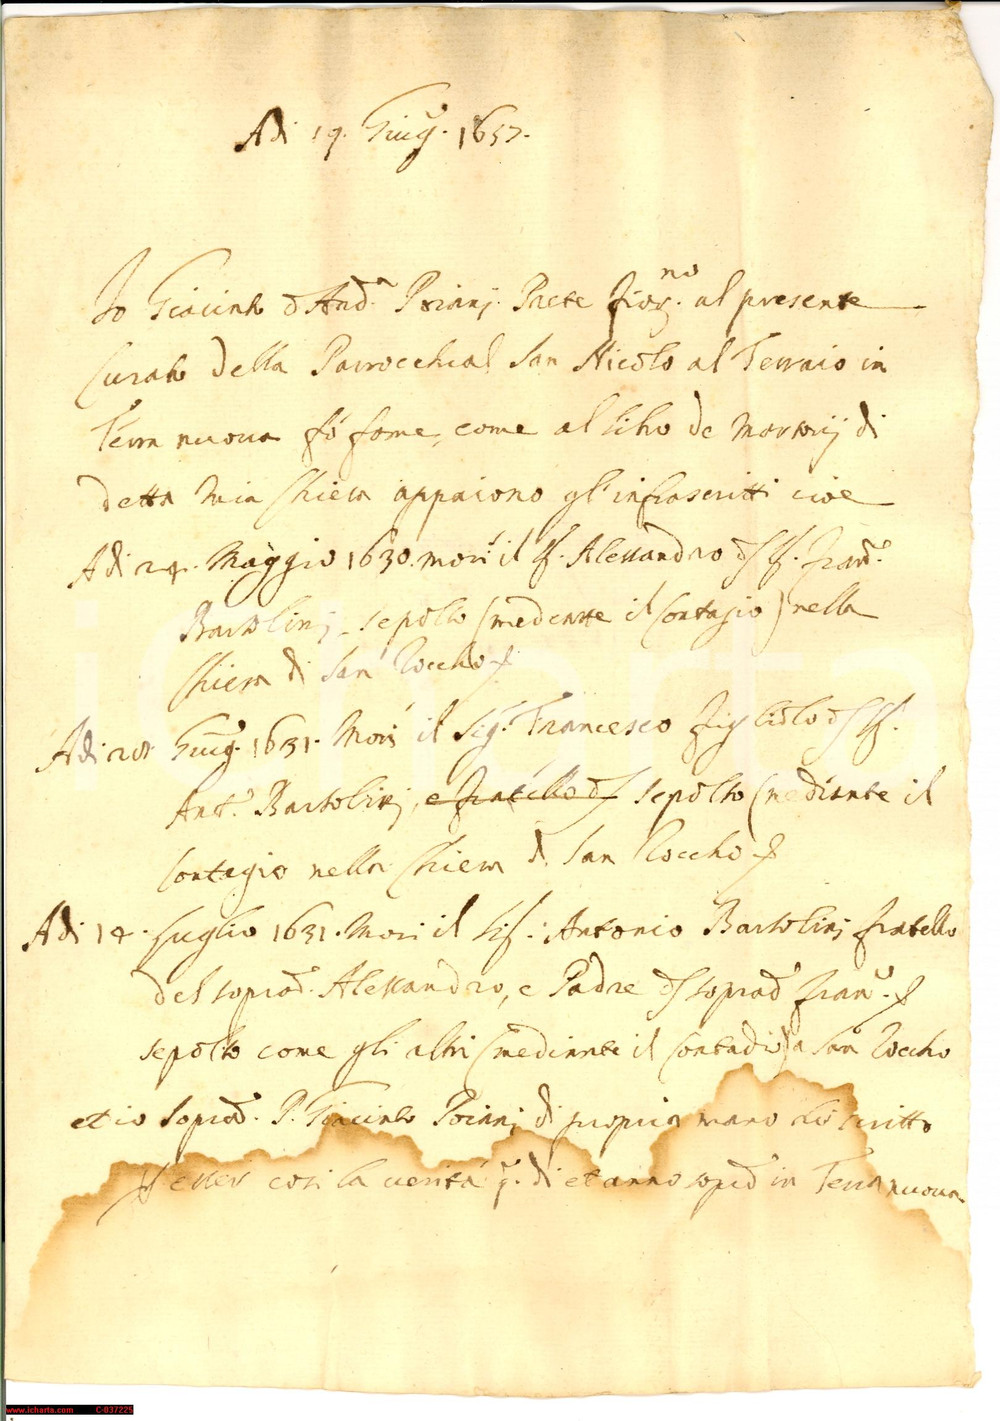 Adi 19. Giug.º 1657.
Io Giacinto d'And.ª Poianj Prete fior.no al presente
Curato della Parrocchial San Nicolo al Terraio in
Terra nuova fò fome, come al libro de Mortorij di
detta mia Chiesa appaiono gl'infrascritti cioe
Adi 24. Maggio 1630. morì il S. Alessandro d S. Fran.º
Bartolinj sepolto (medente il Contagio) nella
Chiesa di San Roccho
Adi 28 Giug.º 1631. Morì il Sig.r Francesco figliolo d S.
Ant.º Bartolinj, e fratello d sepolto (mediante il
Contagio nella Chiesa d. San Roccho
Adi 14. Luglio 1631. Mori il Sig.r Antonio Bartolinj fratello
del soprad.º Alessandro, e Padre d soprad.º fran.º
sepolto come gli altri (mediante il Contadio) a San Roccho
et io soprad.º P. Giacinto Poianj di propria mano hò scritto
esser così la verità q.º dì et anno sop.d in Terra nuova
www.icharta.com C-837225